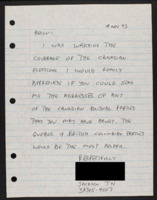 4 NOV 93
HELLO,
I WAS WATCHING THE
COVERAGE OF THE CANADIAN
ELECTIONS. I WOULD REALLY
APPRECIATE IF YOU COULD SEND
ME THE ADDRESSES OF ANY
OF THE CANADIAN POLITICAL PARTIES
THAT YOU MAY HAVE ABOUT. THE
QUEBEC & BRITISH COLUMBIA PARTIES
WOULD BE THE MOST
RESPECTFULLY
JACKSON TN
38305